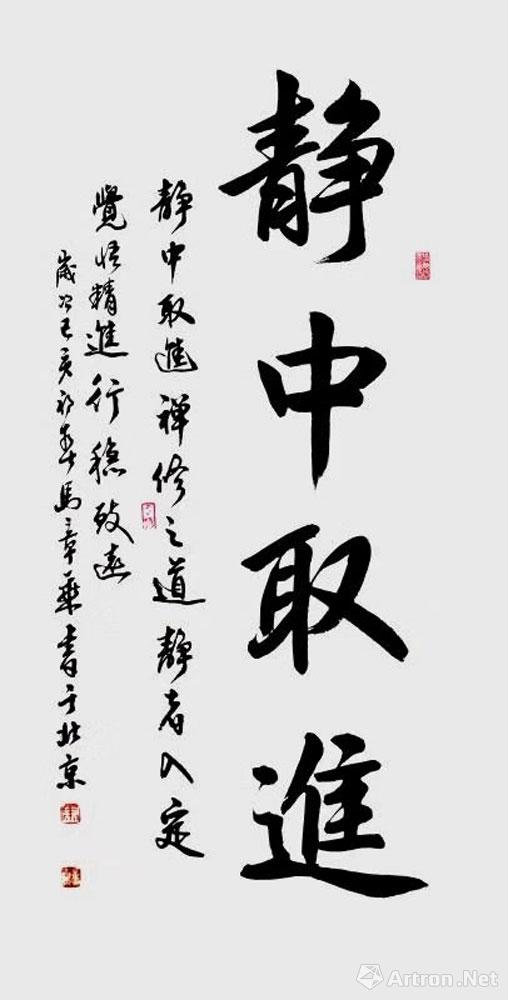 静中取進
静中取進禅修之道静者入定
覺悟精進行穩致遠
歲次己亥初春馬章乘書于北京
Artron.Net